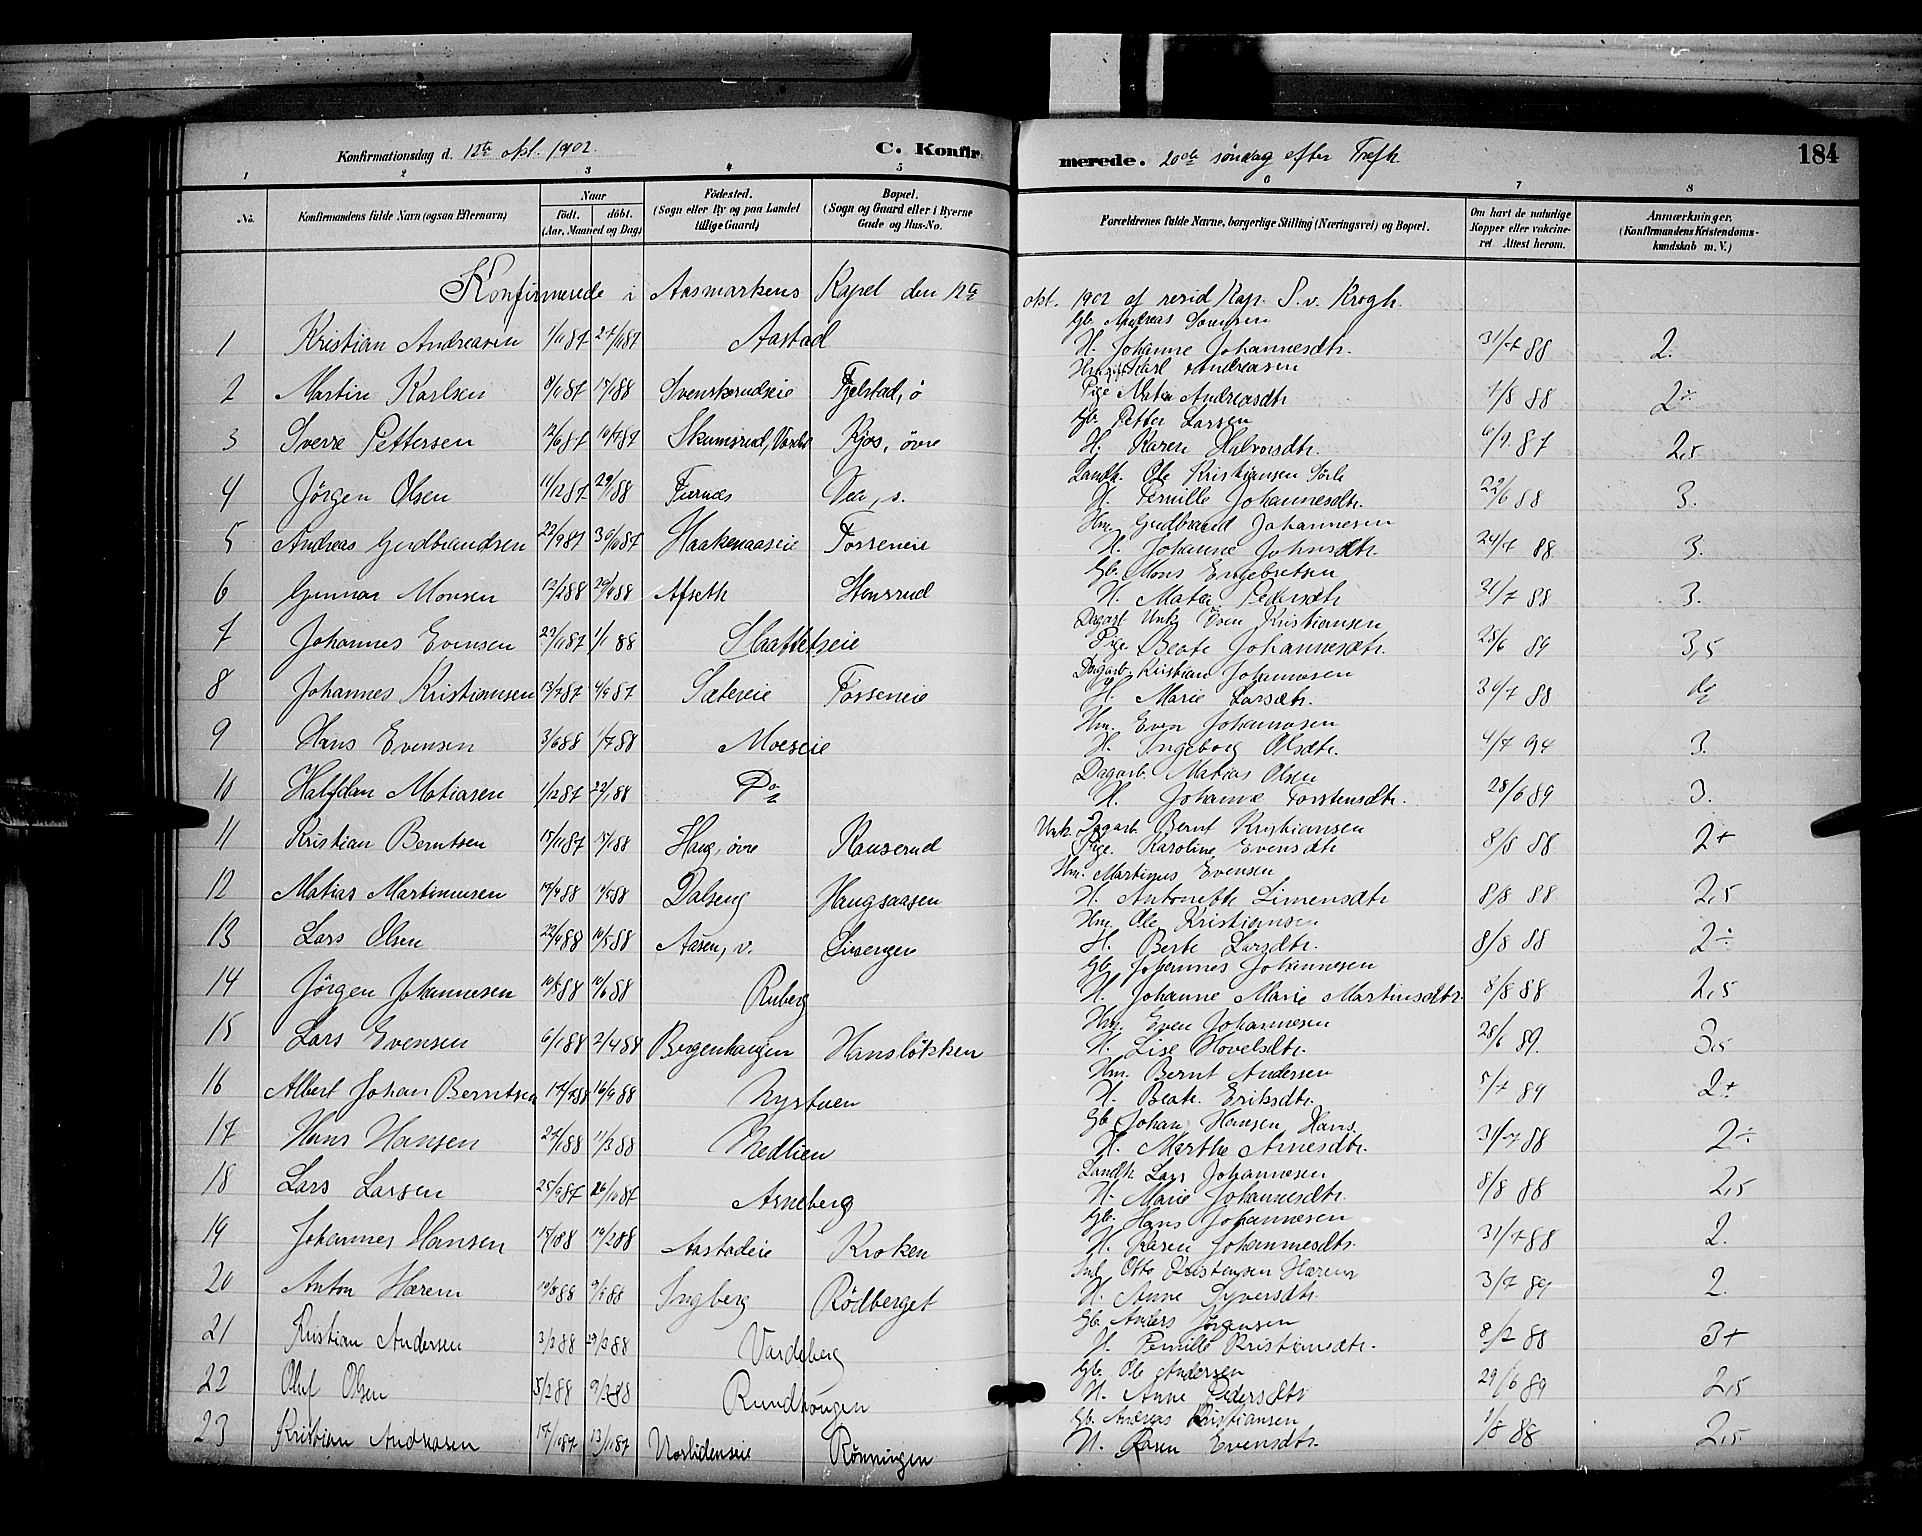 Konfirmationsdag d. 12te okt. 1902. C. Konfirmerede. 20de söndag efter Trefh. 184
1 2 3 4 5 6 7 8
No. Konfirmandens fulde Navn (ogsaa Efternavn) Naar födt. döbt. (Aar, Maaned og Dag) Födested. (Sogn eller By og paa Landet tillige Gaard) Bopæl. (Sogn og Gaard eller i Byerne Gade og Hus-No. Forældrenes fulde Navne, borgerlige Stilling (Næringsvei) og Bopæl. Om havt de naturlige Kopper eller vakcineret. Attest herom. Anmærkninger. (Konfirmandens Kristendomskundskab m. V.)
Konfirmerede i Aasmarkens Kapel den 12te okt. 1902 af resid Kap. S. v. Krogh.
Gb. Andreas Sorensen
1 Kristian Andreasen 1/11 87 27/11 87 Aastad H. Johanne Johannesdtr. 31/7 88 2.
Karl Andreasen
2 Martin Karlsen 8/11 87 15/1 88 Svenskerudseie Fjelstad, ö Pige Mathea Andreasdtr 1/8 88 2÷
Gb. Petter Larsen
3 Sverre Pettersen 12/6 87 10/7 87 Skumsrud, Kjos, övre H. Karen Halvorsdtr. 6/9 87 2,5
Landh. Ole Kristiansen
4 Jörgen Olsen 11/12 87 29/1 88 Furnes H. Pernille Johannesdtr. 22/6 88 3.
Hm. Gudbrand Johannesen
5 Andreas Gudbrandsen 22/9 87 30/10 87 Haakenaaseie Forseneie H. Johanne Johnsdtr. 24/7 88 3.
Gb. Mons Engebretsen
6 Gunnar Monsen 12/2 88 29/4 88 Afseth Stensrud H. Mathea Pedersdtr 31/7 88 3.
Dagarb. Ungk. Even Kristiansen
7 Johannes Evensen 22/11 87 1/1 88 Slaattetseie Pige. Beate Johannesdtr. 28/6 89 3,5
Dagarb. Kristian Johannesen
8 Johannes Kristiansen 13/7 87 4/9 87 Sætereie Forseneie H. Marie Larsdtr. 30/7 88
Hm. Even Johannesen
9 Hans Evensen 3/6 88 1/7 88 Moeseie H. Ingeborg Olsdtr. 4/7 94 3.
Dagarb. Matias Olsen
10 Halfdan Matiasen 1/12 87 22/1 88 Do H. Johanne Torstensdtr. 28/6 89 3.
Unk. Dagarb. Bernt Kristiansen
11 Kristian Berntsen 15/11 87 15/1 88 Haug, övre Rauserud Pige. Karoline Evensdtr 8/8 88 2+
Hm. Martinus Evensen
12 Matias Martinusen Dalseng Haugsaasen H. Antonette Simensdtr 8/8 88 2,5
Hm. Ole Kristiansen
13 Lars Olsen 22/4 88 10/5 88 Aasen, v. H. Berte Larsdtr. 8/8 88 2÷
Gb. Johannes Johannesen
14 Jörgen Johannesen 10/5 88 10/6 88 Ruberg H. Johanne Marie Martinsdtr. 8/8 88 2,5
Hm. Even Johannesen
15 Lars Evensen 6/1 88 2/4 88 Bergenhaugen Hanslökken H. Lise Hovelsdtr. 28/6 89. 3,5
Hm. Bernt Andersen
16 Albert Johan Berntsen 17/7 88 16/9 88 Nystuen H. Beate Eriksdtr. 5/7 89 2+
Gb. Johan Hansen Hans.
17 Hans Hansen 27/1 88 11/3 88 Nedlien H. Marthe Arnesdtr. 31/7 88 2÷
Landh. Lars Johannesen
18 Lars Larsen 25/9 87 26/11 87 Arneberg H. Marie Johannesdtr. 8/8 88 2,5
Gb. Hans Johannesen
19 Johannes Hansen 15/1 88 19/2 88 Aastadeie Kroken H. Karen Johannesdtr. 31/7 88 2.
Otto Kristensen Hærem
20 Anton Hærem Ingberg Rödberget H. Anne Syversdtr. 3/7 89 2.
Gb. Anders Jörgensen
21 Kristian Andersen 3/3 88 29/3 88 Vardeberg H. Pernille Kristiansdtr. 8/2 88 3+
Gb. Ole Andersen
22 Oluf Olsen 5/2 88 9/3 88 Rundhougen H. Anne Pedersdtr 29/6 89 2,5
Gb. Andreas Kristiansen
23 Kristian Andreasen 17/10 87 13/11 87 Norlidenseie Rönningen H. Karen Evensdtr. 1/8 88 2,5